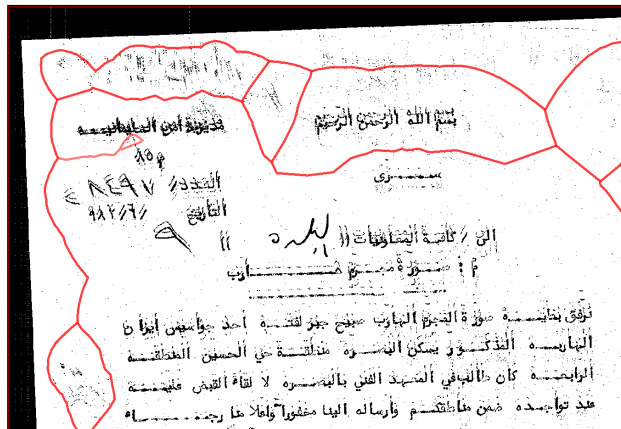 بسم الله الرحمن الرحيم
مديرية امن السليمانيه
م٥٨
ســـرى
العدد // ٨٤٩٧
التاريخ // ٦ / ٩٨٢
الى / كافة المعاونيات //
م : صـورة مجـرم هـــارب
نرفق بطيـه صورة المجرم الهارب صبيح جبر لفتـه احد جواسيس ايران
الهاربـه المذكـور يسكن البصـره منطقـة حي الحسين المنطقـه
الرابعـه كان طالب في المعهد الفني بالبصـره لا لقاء القبض عليـه
عند تواجـده ضمن مناطقكـم وارساله الينا مخفورا واعلامنا رجـــاء